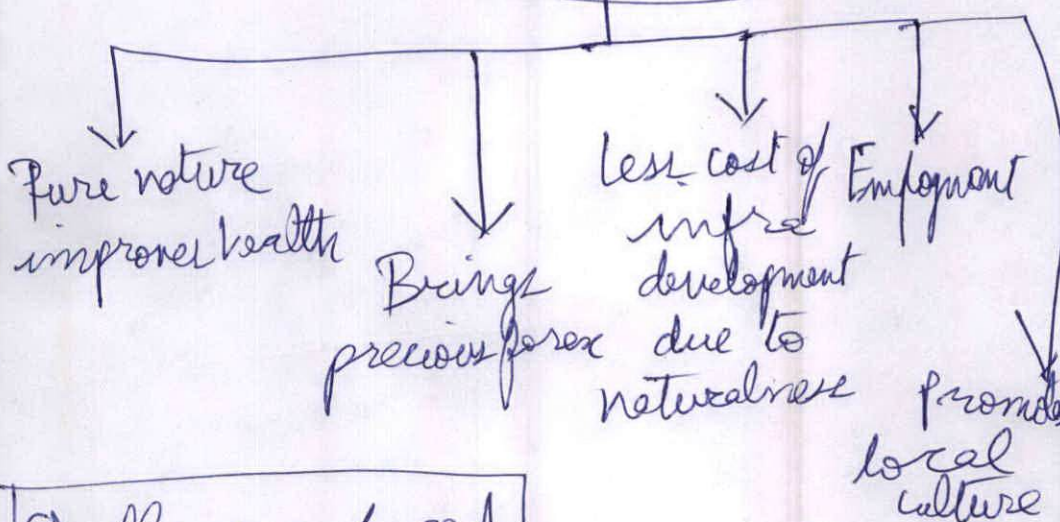 Pure nature
improves health
Brings
precious forex
less cost of
infra
development
due to
naturalness
Employment
Promotes
local
culture